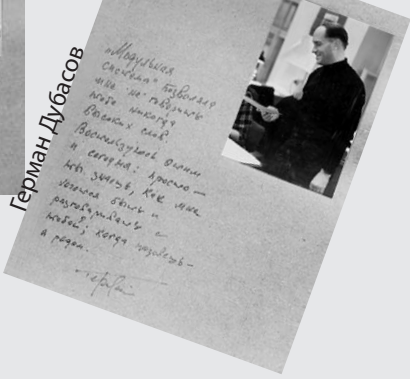 Герман Дубасов
„Модульная
система" позволяла
мне не говорить
тебе никогда
высоких слов.
Воспользуюсь этим
и сегодня: просто —
ты знаешь, как мне
хочется быть и
разговаривать с
тобой; когда позовёшь -
я рядом.